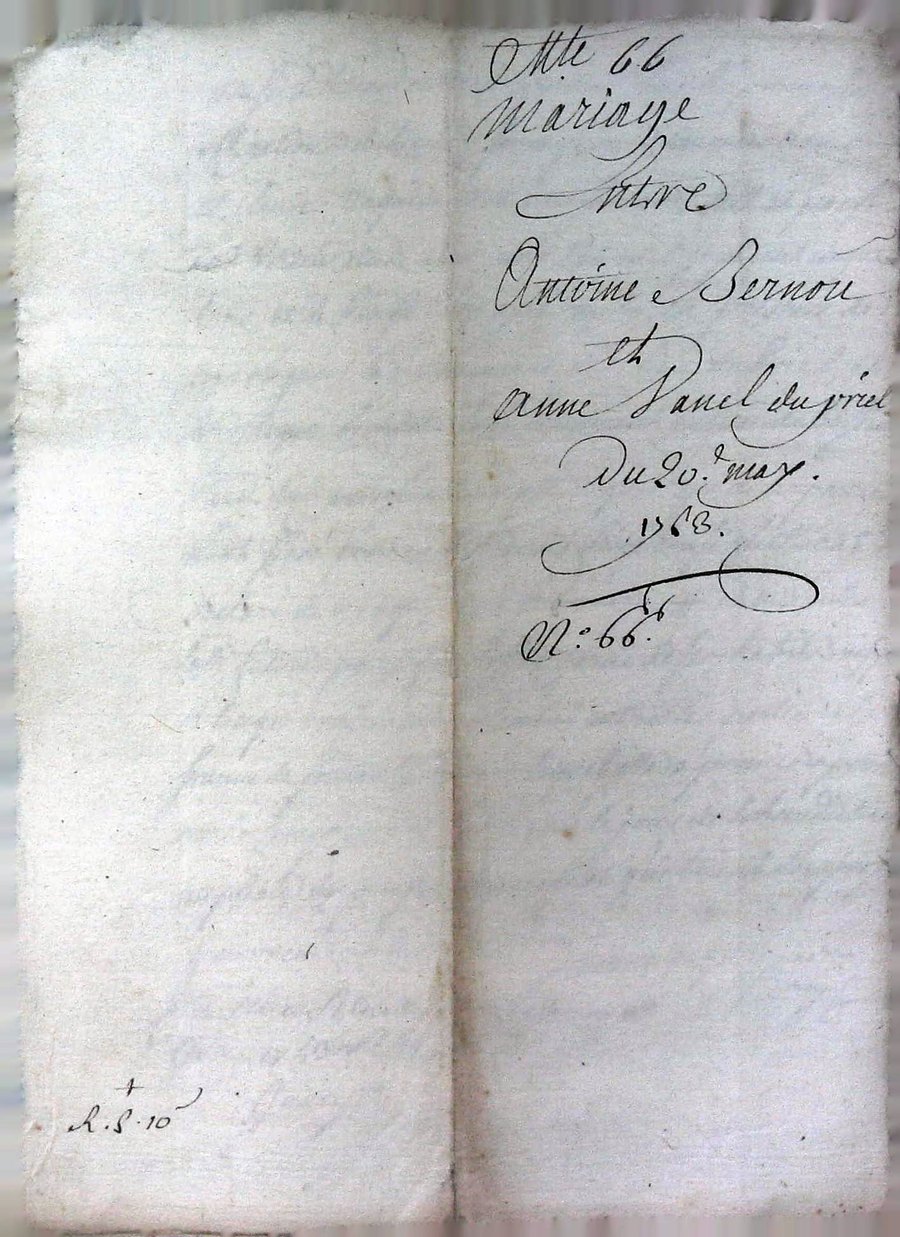 Mte 66
Mariage
Entre
Antoine Bernou
et
anne Vanel du priel
Du 20.e may.
1768.
N.o 66.
R. S. 10